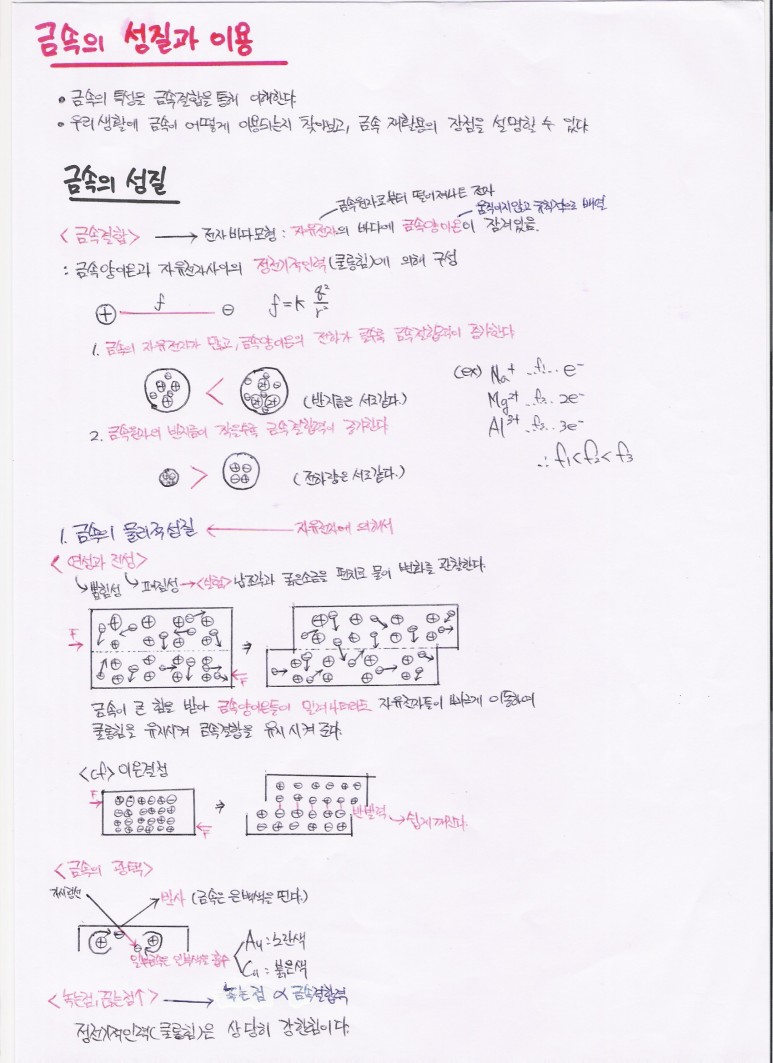 금속의 성질과 이용
• 금속의 특성을 금속결합을 통해 이해한다
• 우리생활에 금속이 어떻게 이용되는지 찾아보고, 금속 재활용의 장점을 설명할 수 있다
금속의 성질
금속원자로부터 떨어져나온 전자
움직이지않고 규칙적으로 배열
<금속결합> → 전자바다모형 : 자유전자의 바다에 금속양이온이 잠겨있음.
: 금속양이온과 자유전자사이의 정전기적인력(쿨롱힘)에 의해 구성
⊕ f ⊖ f = k q²/r²
1. 금속의 자유전자가 많고, 금속양이온의 전하가 클수록 금속결합력이 증가한다
< (반지름은 서로같다.)
(ex) Na⁺ ..f₁.. e⁻
Mg²⁺ ..f₂.. 2e⁻
Al³⁺ ..f₃.. 3e⁻
∴ f₁<f₂<f₃
2. 금속원자의 반지름이 작을수록 금속결합력이 증가한다
> (전하량은 서로같다.)
1. 금속의 물리적성질 ← 자유전자에 의해서
<연성과 전성>
뽑힘성 펴짐성 → <실험> 납조각과 굵은소금을 펜치로 물어 변화를 관찰한다.
F ⇒ F
금속이 큰 힘을 받아 금속양이온들이 밀려나더라도 자유전자들이 빠르게 이동하여
쿨롱힘을 유지시켜 금속결합을 유지시켜 준다.
<cf> 이온결정
F ⇒ F 반발력 → 쉽게 깨진다.
<금속의 광택>
가시광선 반사 (금속은 은백색을 띤다.)
일부금속은 일부색을 흡수
Au : 노란색
Cu : 붉은색
<녹는점, 끓는점↑> → 녹는점 ∝ 금속결합력
정전기적인력(쿨롱힘)은 상당히 강한힘이다.